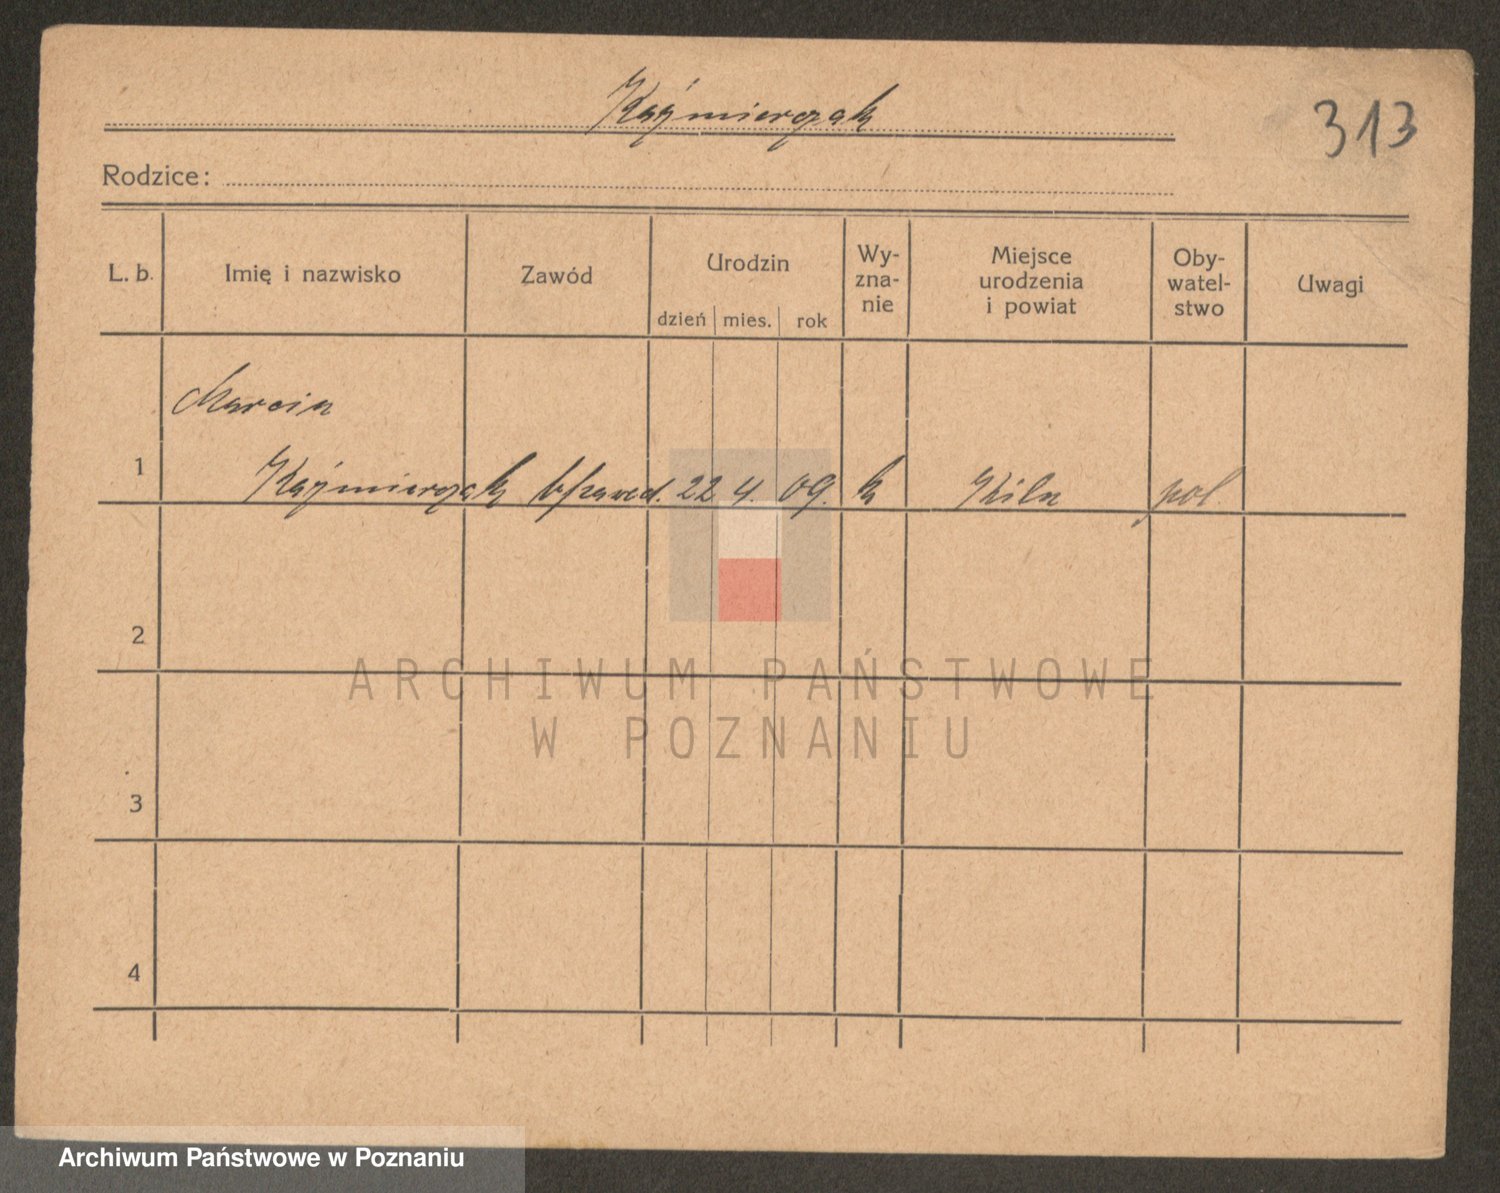 Kaźmierczak
313
Rodzice:
L. b. Imię i nazwisko Zawód Urodzin dzień mies. rok Wy-zna-nie Miejsce urodzenia i powiat Oby-watel-stwo Uwagi
Marcin
1 Kaźmierczak b/zawod. 22 4. 09. k Kiln pol.
2
ARCHIWUM PAŃSTWOWE
W POZNANIU
3
4
Archiwum Państwowe w Poznaniu